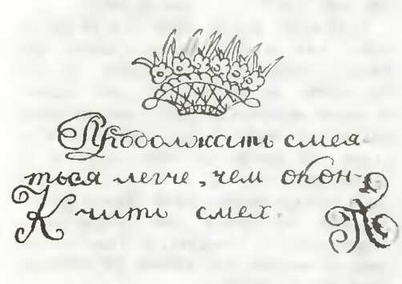 Продолжать смея-
ться легче, чем окон-
К чить смех. П